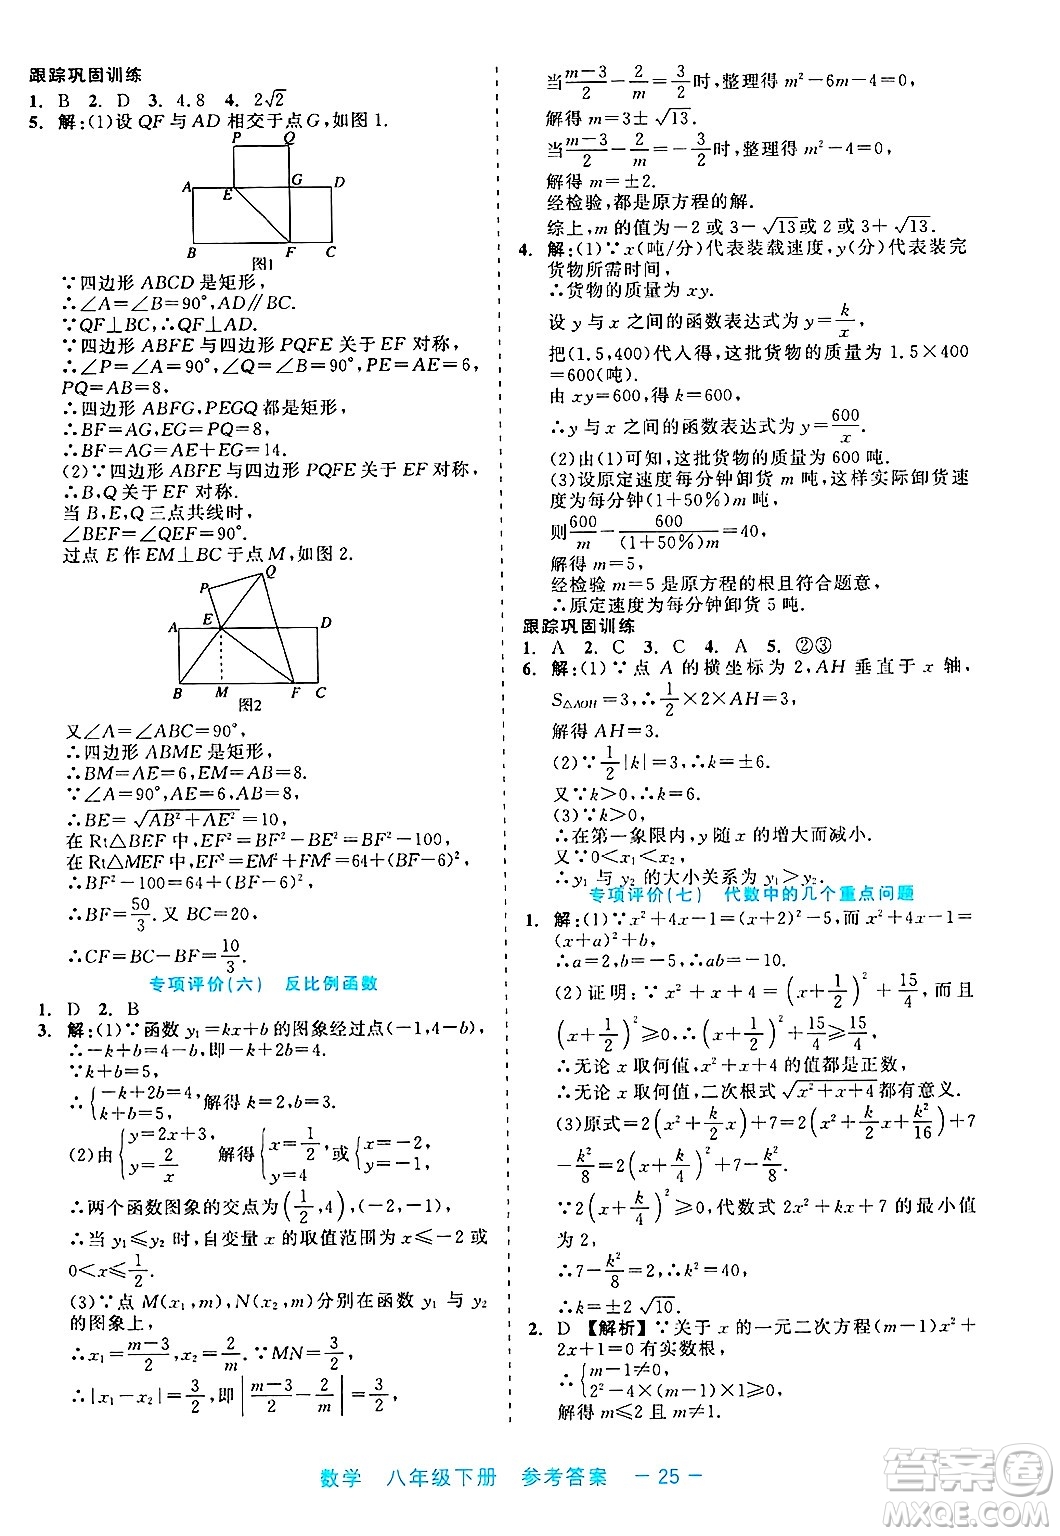 跟踪巩固训练
1. B 2. D 3. 4.8 4. 2√2
5. 解:(1)设 QF 与 AD 相交于点 G,如图 1.
P Q
A E G D
B F C
图1
∵四边形 ABCD 是矩形,
∴∠A=∠B=90°,AD∥BC.
∵QF⊥BC,∴QF⊥AD.
∵四边形 ABFE 与四边形 PQFE 关于 EF 对称,
∴∠P=∠A=90°,∠Q=∠B=90°,PE=AE=6,
PQ=AB=8,
∴四边形 ABFG,PEGQ 都是矩形,
∴BF=AG,EG=PQ=8,
∴BF=AG=AE+EG=14.
(2)∵四边形 ABFE 与四边形 PQFE 关于 EF 对称,
∴B,Q 关于 EF 对称.
当 B,E,Q 三点共线时,
∠BEF=∠QEF=90°.
过点 E 作 EM⊥BC 于点 M,如图 2.
P Q
A E D
B M F C
图2
又∠A=∠ABC=90°,
∴四边形 ABME 是矩形,
∴BM=AE=6,EM=AB=8.
∵∠A=90°,AE=6,AB=8,
∴BE=√(AB²+AE²)=10,
在 Rt△BEF 中,EF²=BF²-BE²=BF²-100,
在 Rt△MEF 中,EF²=EM²+FM²=64+(BF-6)²,
∴BF²-100=64+(BF-6)²,
∴BF=50/3.又 BC=20,
∴CF=BC-BF=10/3.
专项评价(六) 反比例函数
1. D 2. B
3. 解:(1)∵函数 y₁=kx+b 的图象经过点(-1,4-b),
∴-k+b=4-b,即-k+2b=4.
∵k+b=5,
∴{-k+2b=4, k+b=5, 解得 k=2,b=3.
(2)由{y=2x+3, y=2/x 解得{x=1/2, y=4 或{x=-2, y=-1.
∴两个函数图象的交点为(1/2,4),(-2,-1),
∴当 y₁≤y₂ 时,自变量 x 的取值范围 x≤-2 或
0<x≤1/2.
(3)∵点 M(x₁,m),N(x₂,m)分别在函数 y₁ 与 y₂
的图象上,
∴x₁=(m-3)/2,x₂=2/m.∵MN=3/2,
∴|x₁-x₂|=3/2,即|(m-3)/2-2/m|=3/2,
当(m-3)/2-2/m=3/2时,整理得 m²-6m-4=0,
解得 m=3±√13.
当(m-3)/2-2/m=-3/2时,整理得 m²-4=0,
解得 m=±2.
经检验,都是原方程的解.
综上,m 的值为-2 或 3-√13或 2 或 3+√13.
4. 解:(1)∵x(吨/分)代表装载速度,y(分)代表装完
货物所需时间,
∴货物的质量为 xy.
设 y 与 x 之间的函数表达式为 y=k/x,
把(1.5,400)代人得,这批货物的质量为 1.5×400
=600(吨).
由 xy=600,得 k=600,
∴y 与 x 之间的函数表达式为 y=600/x.
(2)由(1)可知,这批货物的质量为 600 吨.
(3)设原定速度每分钟卸货 m 吨,这样实际卸货速
度为每分钟(1+50%)m 吨,
则600/m-600/((1+50%)m)=40,
解得 m=5,
经检验 m=5 是原方程的根且符合题意,
∴原定速度为每分钟卸货 5 吨.
跟踪巩固训练
1. A 2. C 3. C 4. A 5. ②③
6. 解:(1)∵点 A 的横坐标为 2,AH 垂直于 x 轴,
S△AOH=3,∴1/2×2×AH=3,
解得 AH=3.
(2)∵1/2|k|=3,∴k=±6.
又∵k>0,∴k=6.
(3)∵k>0,
∴在第一象限内,y 随 x 的增大而减小.
又∵0<x₁<x₂,
∴y₁ 与 y₂ 的大小关系为 y₁>y₂.
专项评价(七) 代数中的几个重点问题
1. 解:(1)∵x²+4x-1=(x+2)²-5,而 x²+4x-1=
(x+a)²+b,
∴a=2,b=-5,∴ab=2×(-5)=-10.
(2)证明:∵x²+x+4=(x+1/2)²+15/4,而且
(x+1/2)²≥0,∴(x+1/2)²+15/4≥15/4,
∴无论 x 取何值,x²+x+4 的值都是正数,
∴无论 x 取何值,二次根式√(x²+x+4)都有意义.
(3)原式=2(x²+k/2x)+7=2(x²+k/2x+k²/16)+7
-k²/8=2(x+k/4)²+7-k²/8.
∵2(x+k/4)²≥0,∴代数式 2x²+kx+7 的最小值
为 2,
∴7-k²/8=2,∴k²=40,
∴k=±2√10.
2. D 【解析】∵关于 x 的一元二次方程(m-1)x²+
2x+1=0 有实数根,
∴{m-1≠0, 2²-4×1×(m-1)≥0,
解得 m≤2 且 m≠1.
数学 八年级下册 参考答案 -25-
答案圈
MXQE.COM